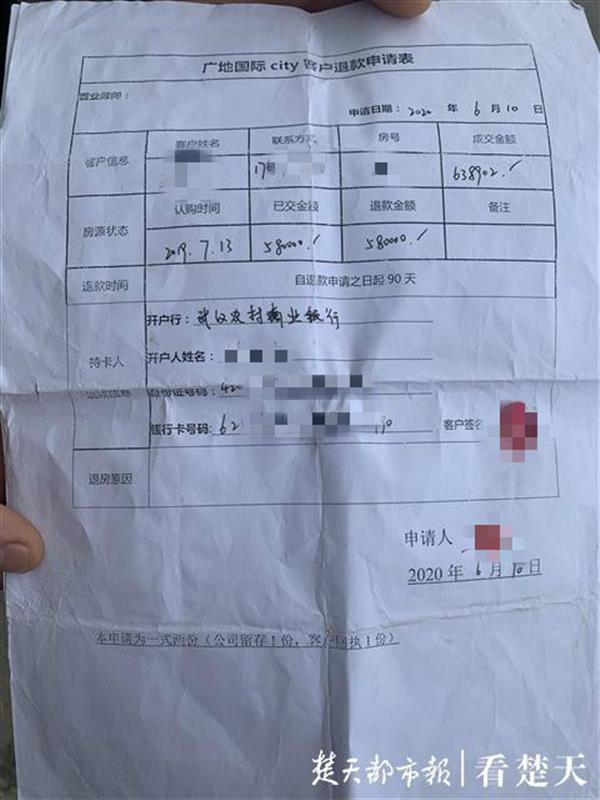 广地国际city客户退款申请表
置业顾问：
申请日期：2020 年 6 月 10 日
客户信息 客户姓名 联系方式 房号 成交金额
17 638902./
房源状态 认购时间 已交金额 退款金额 备注
2019.7.13 580000./ 580000./
退款时间 自退款申请之日起 90 天
开户行：武汉农村商业银行
持卡人 开户人姓名：
身份证号码：420
银行卡号码：62 30 客户签名
退房原因
申请人
2020 年 6 月 10 日
本申请为一式两份（公司留存 1 份，客户回执 1 份）
楚天都市报 看楚天